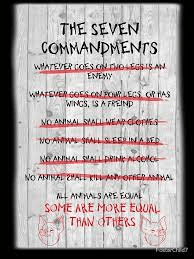 THE SEVEN
COMMANDMENTS
WHATEVER GOES ON TWO LEGS IS AN
ENEMY
WHATEVER GOES ON FOUR LEGS, OR HAS
WINGS, IS A FREIND
NO ANIMAL SHALL WEAR CLOTHES
NO ANIMAL SHALL SLEEP IN A BED
NO ANIMAL SHALL DRINK ALCOHOL
NO ANIMAL SHALL KILL ANY OTHER ANIMAL
ALL ANIMALS ARE EQUAL
SOME ARE MORE EQUAL
THAN OTHERS
FosterChild7